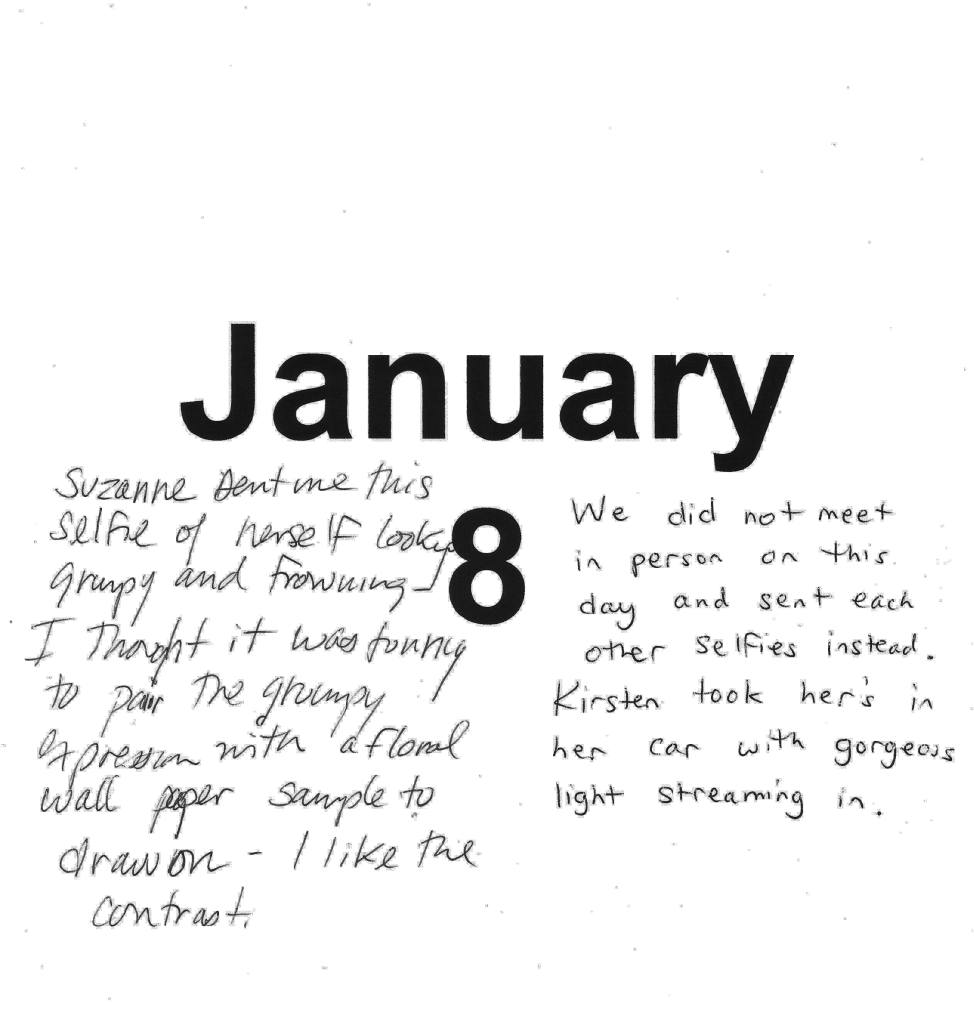 January
8
Suzanne sent me this
selfie of herself looking
grumpy and frowning
I thought it was funny
to pair the grumpy
expression with a floral
wall paper sample to
draw on - I like the
contrast.
We did not meet
in person on this
day and sent each
other selfies instead.
Kirsten took her's in
her car with gorgeous
light streaming in.